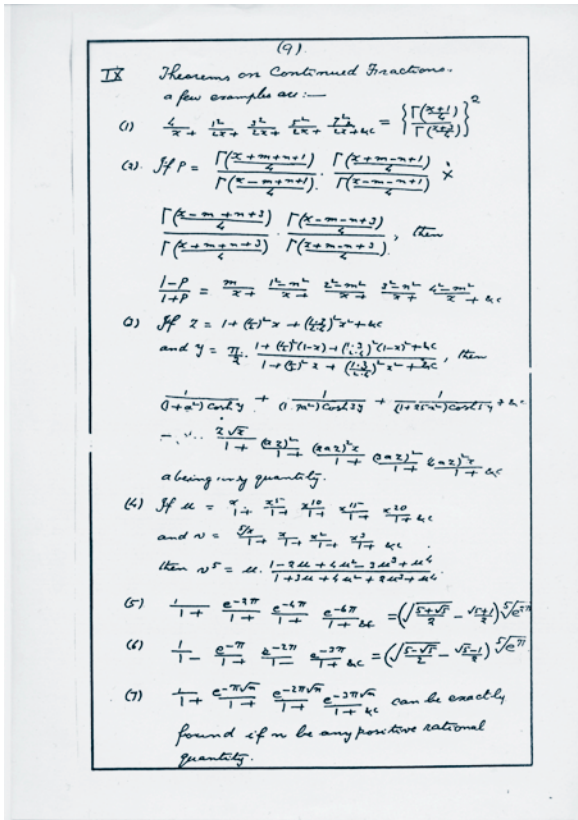 (9).
IX Theorems on Continued Fractions.
a few examples are :—
(1) 4/x + 1²/2x + 3²/2x + 5²/2x + 7²/2x + &c = {Γ((x+1)/4) / Γ((x+3)/4)}²
(2). If P = Γ((x+m+n+1)/4) / Γ((x-m+n+1)/4) · Γ((x+m-n+1)/4) / Γ((x-m-n+1)/4) ×
Γ((x-m+n+3)/4) / Γ((x+m+n+3)/4) · Γ((x-m-n+3)/4) / Γ((x+m-n+3)/4), then
(1-P)/(1+P) = m/x + (1²-n²)/x + (2²-m²)/x + (3²-n²)/x + (4²-m²)/x + &c
(3) If z = 1 + (1/2)²x + (1·3/2·4)²x² + &c
and y = π/2 · (1 + (1/2)²(1-x) + (1·3/2·4)²(1-x)² + &c) / (1 + (1/2)²x + (1·3/2·4)²x² + &c), then
1/((1+a²) cosh y) + 1/((1 + 9a²) cosh 3y) + 1/((1+25a²) cosh 5y) + &c
z√x/1 + (az)²/1 + (2az)²x/1 + (3az)²/1 + (4az)²x/1 + &c
a being any quantity.
(4) If u = x/1 + x⁵/1 + x¹⁰/1 + x¹⁵/1 + x²⁰/1 + &c
and v = ⁵√x/1 + x/1 + x²/1 + x³/1 + &c .
then v⁵ = u · (1 - 2u + 4u² - 3u³ + u⁴) / (1 + 3u + 4u² + 2u³ + u⁴).
(5) 1/1 + e^(-2π)/1 + e^(-4π)/1 + e^(-6π)/1 + &c = (√((5+√5)/2) - (√5+1)/2) ⁵√(e^(2π))
(6) 1/1 - e^(-π)/1 + e^(-2π)/1 - e^(-3π)/1 + &c = (√((5-√5)/2) - (√5-1)/2) ⁵√(e^π)
(7) 1/1 + e^(-π√n)/1 + e^(-2π√n)/1 + e^(-3π√n)/1 + &c can be exactly
found if n be any positive rational
quantity.